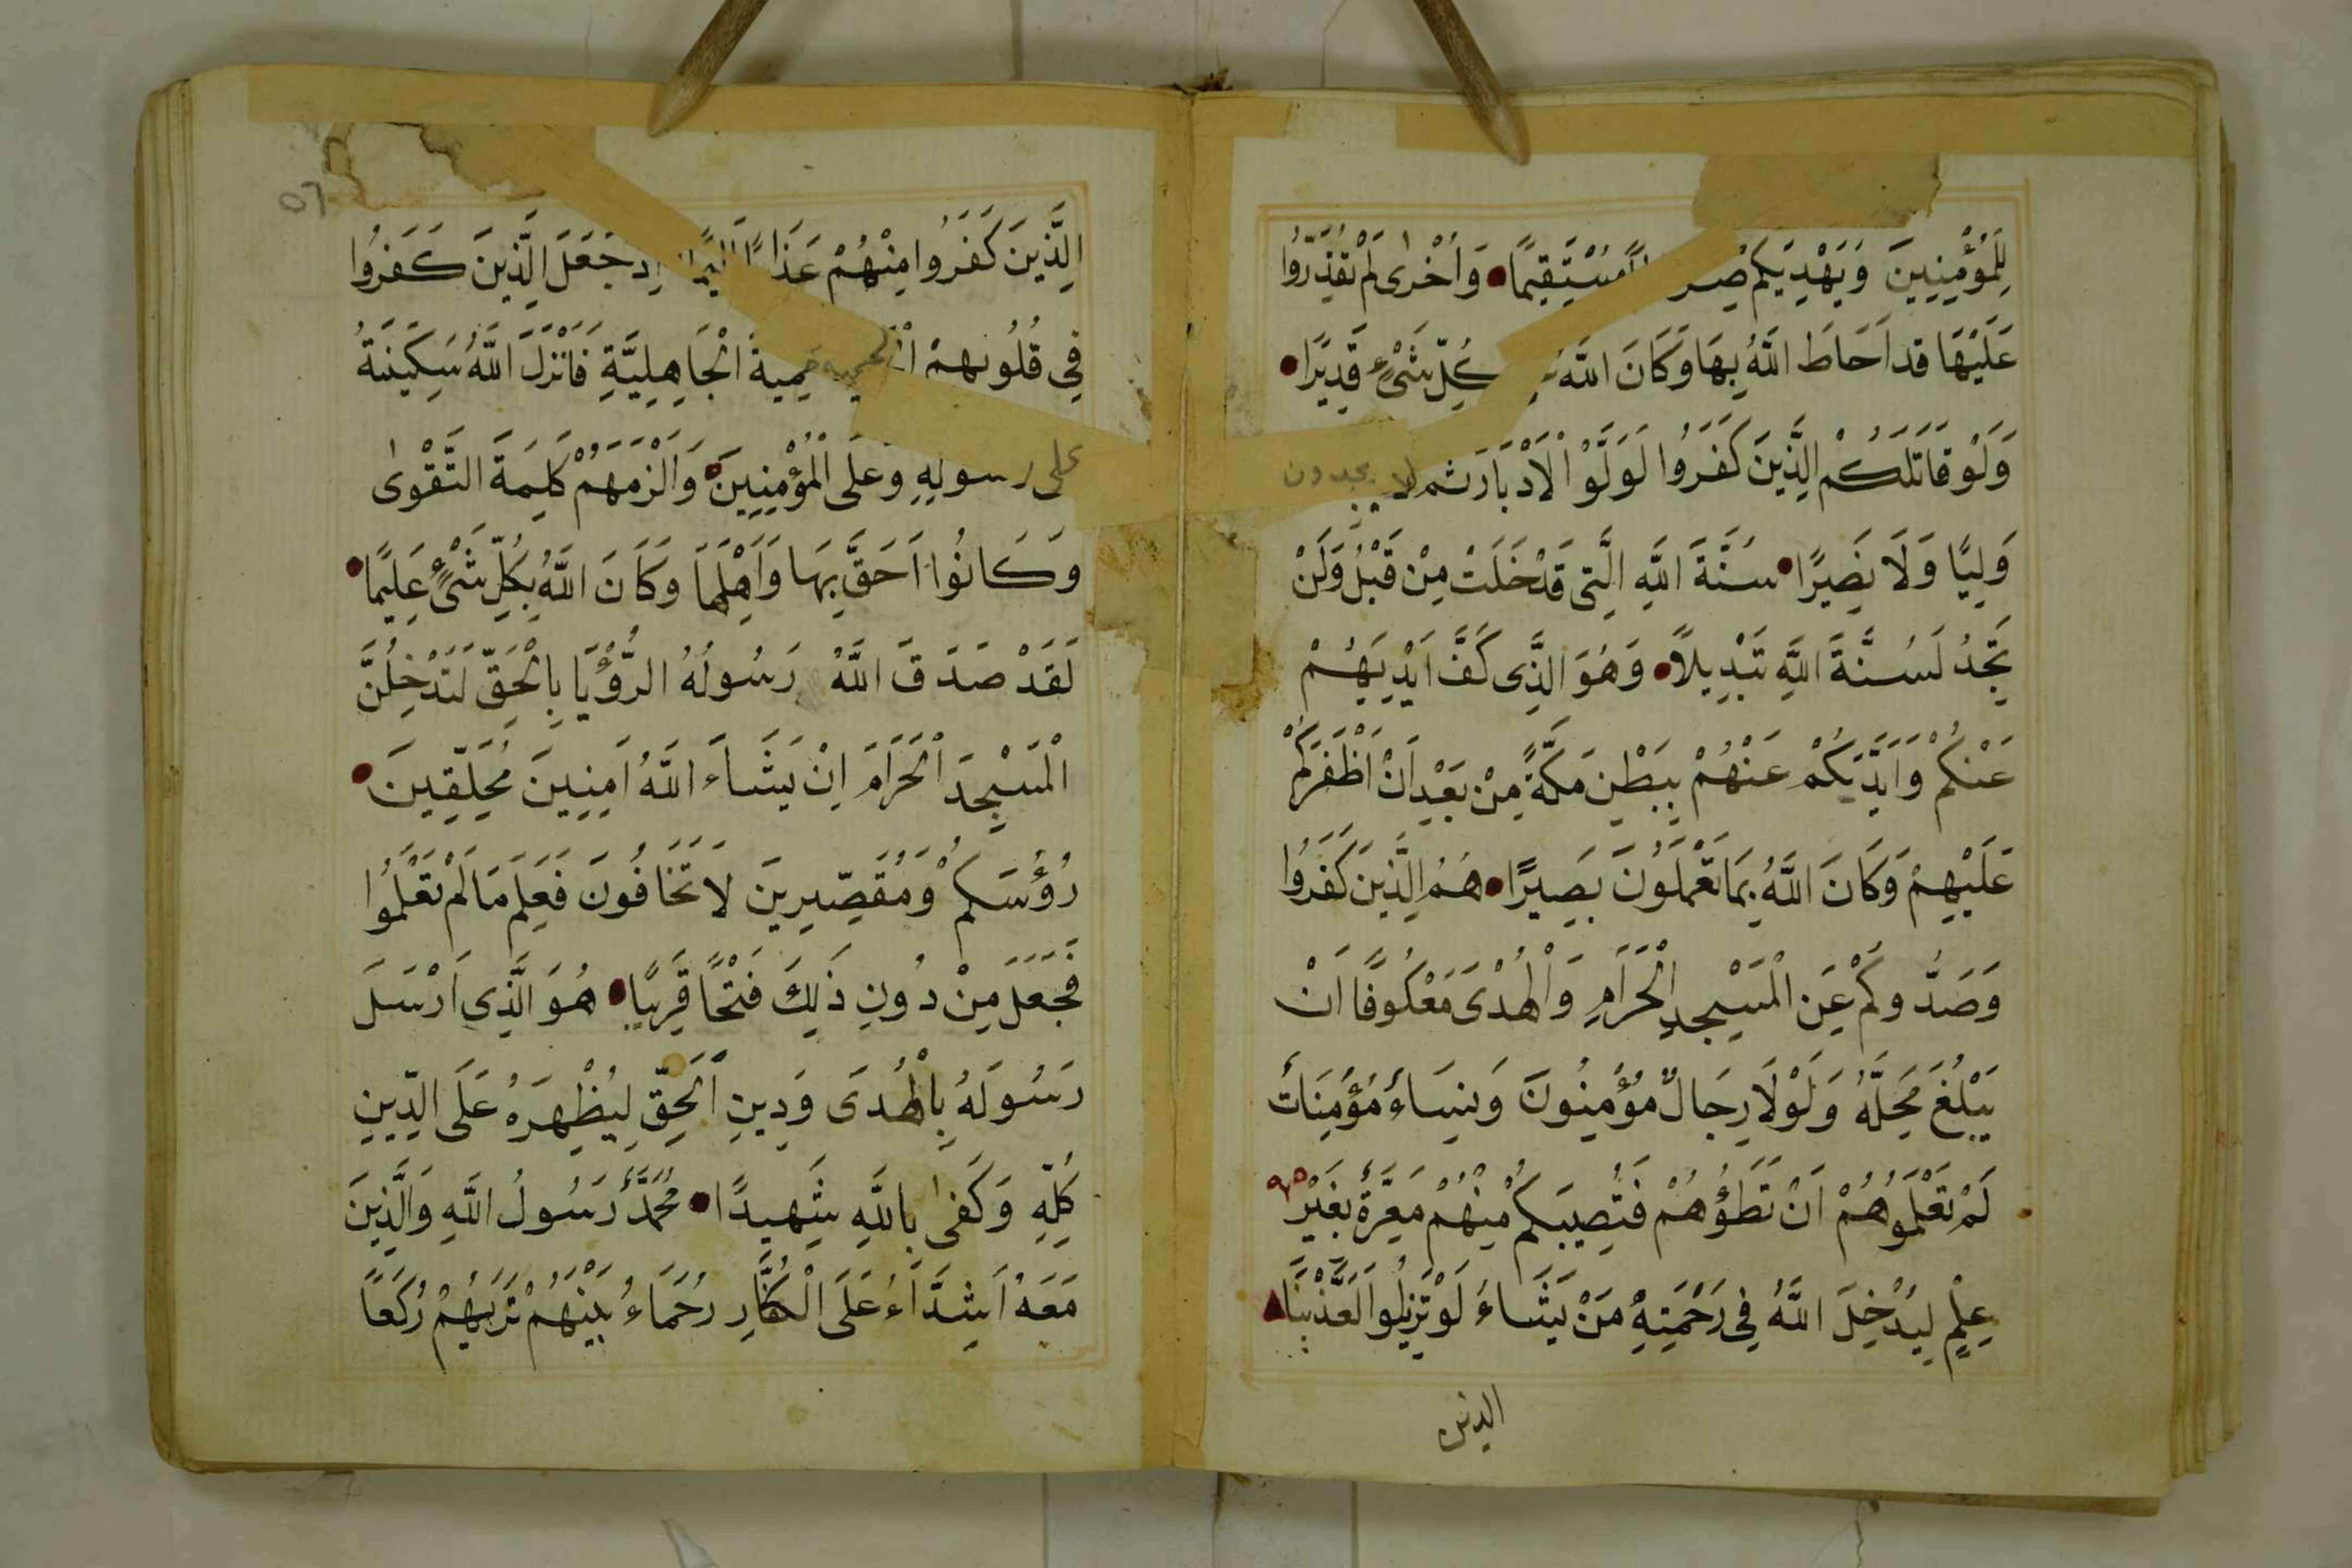 لِلْمُؤْمِنِينَ وَيَهْدِيَكُمْ مُسْتَقِيمًا وَاُخْرٰى لَمْ تَقْدِرُوا
عَلَيْهَا قَد اَحَاطَ اللّٰهُ بِهَا وَكَانَ اللّٰهُ كُلِّ شَىْءٍ قَدِيرًا
وَلَوْ قَاتَلَكُمُ الَّذِينَ كَفَرُوا لَوَلَّوُا الْاَدْبَارَ ثم لا يجدون
وَلِيًّا وَلَا نَصِيرًا سُنَّةَ اللّٰهِ الَّتِى قَدْ خَلَتْ مِنْ قَبْلُ وَلَنْ
تَجِدَ لِسُنَّةِ اللّٰهِ تَبْدِيلًا وَهُوَ الَّذِى كَفَّ اَيْدِيَهُمْ
عَنْكُمْ وَاَيْدِيَكُمْ عَنْهُمْ بِبَطْنِ مَكَّةَ مِنْ بَعْدِ اَنْ اَظْفَرَكُمْ
عَلَيْهِمْ وَكَانَ اللّٰهُ بِمَا تَعْمَلُونَ بَصِيرًا هُمُ الَّذِينَ كَفَرُوا
وَصَدُّوكُمْ عَنِ الْمَسْجِدِ الْحَرَامِ وَالْهَدْىَ مَعْكُوفًا اَنْ
يَبْلُغَ مَحِلَّهُ وَلَوْلَا رِجَالٌ مُؤْمِنُونَ وَنِسَاءٌ مُؤْمِنَاتٌ
لَمْ تَعْلَمُوهُمْ اَنْ تَطَؤُهُمْ فَتُصِيبَكُمْ مِنْهُمْ مَعَرَّةٌ بِغَيْرِ
عِلْمٍ لِيُدْخِلَ اللّٰهُ فِى رَحْمَتِهِ مَنْ يَشَاءُ لَوْ تَزَيَّلُوا لَعَذَّبْنَا
الذين
٥٦
الَّذِينَ كَفَرُوا مِنْهُمْ اِذ جَعَلَ الَّذِينَ كَفَرُوا
فِى قُلُوبِهِمْ الحمية حَمِيةَ الْجَاهِلِيَّةِ فَاَنْزَلَ اللّٰهُ سَكِينَتَهُ
على رسولِهِ وَعَلَى الْمُؤْمِنِينَ وَاَلْزَمَهُمْ كَلِمَةَ التَّقْوٰى
وَكَانُوا اَحَقَّ بِهَا وَاَهْلَهَا وَكَانَ اللّٰهُ بِكُلِّ شَىْءٍ عَلِيمًا
لَقَدْ صَدَقَ اللّٰهُ رَسُولَهُ الرُّؤْيَا بِالْحَقِّ لَتَدْخُلُنَّ
الْمَسْجِدَ الْحَرَامَ اِنْ شَاءَ اللّٰهُ اٰمِنِينَ مُحَلِّقِينَ
رُؤُسَكُمْ وَمُقَصِّرِينَ لَا تَخَافُونَ فَعَلِمَ مَا لَمْ تَعْلَمُوا
فَجَعَلَ مِنْ دُونِ ذَلِكَ فَتْحًا قَرِيبًا هُوَ الَّذِى اَرْسَلَ
رَسُولَهُ بِالْهُدَى وَدِينِ الْحَقِّ لِيُظْهِرَهُ عَلَى الدِّينِ
كُلِّهِ وَكَفٰى بِاللّٰهِ شَهِيدًا مُحَمَّدٌ رَسُولُ اللّٰهِ وَالَّذِينَ
مَعَهُ اَشِدَّاءُ عَلَى الْكُفَّارِ رُحَمَاءُ بَيْنَهُمْ تَرَيهُمْ رُكَّعًا